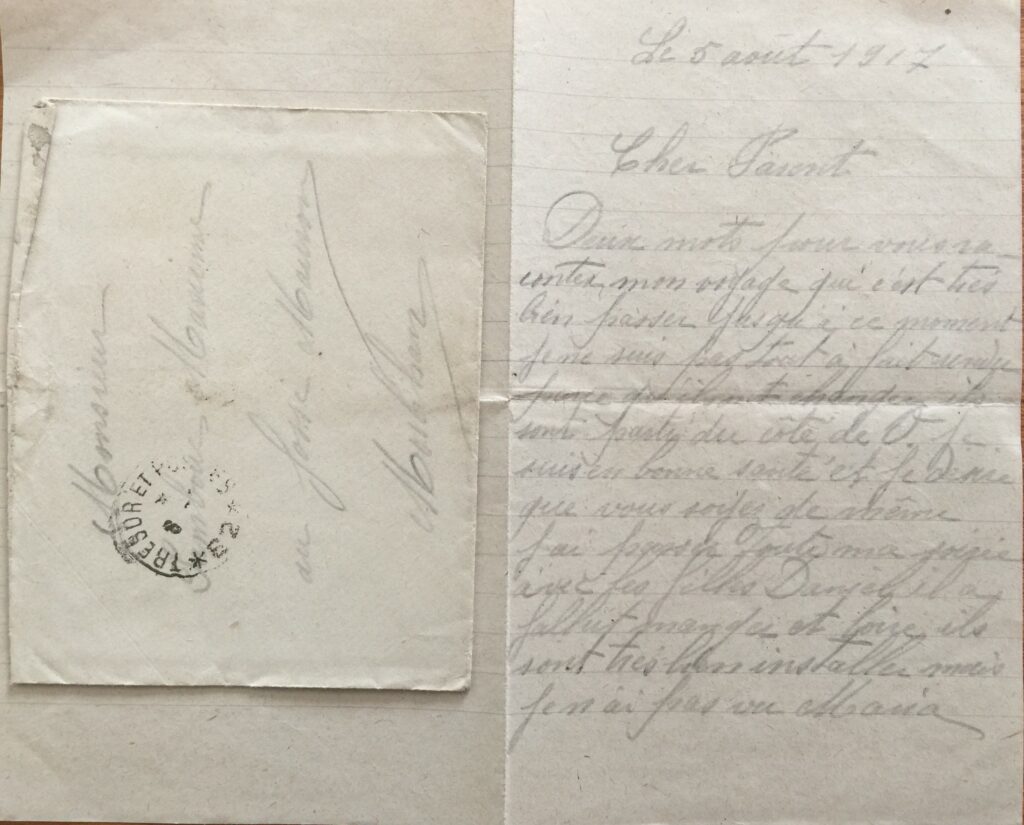 Monsieur
au fosse
TRESOR ET POSTES
*
8
* 32 *
Le 5 août 1917
Cher Parent
Deux mots pour vous ra
conter mon voyage qui c'est très
bien passer jusqu'à ce moment
je ne suis pas tout à fait rendu
parce qu'ils ont changer ils
sont partis du côté de V. Je
suis en bonne santé et je désire
que vous soyez de même
j'ai passer toute ma soirée
avec les filles Daniel il a
fallut manger et boire, ils
sont très bien installer mais
je n'ai pas vu Maria